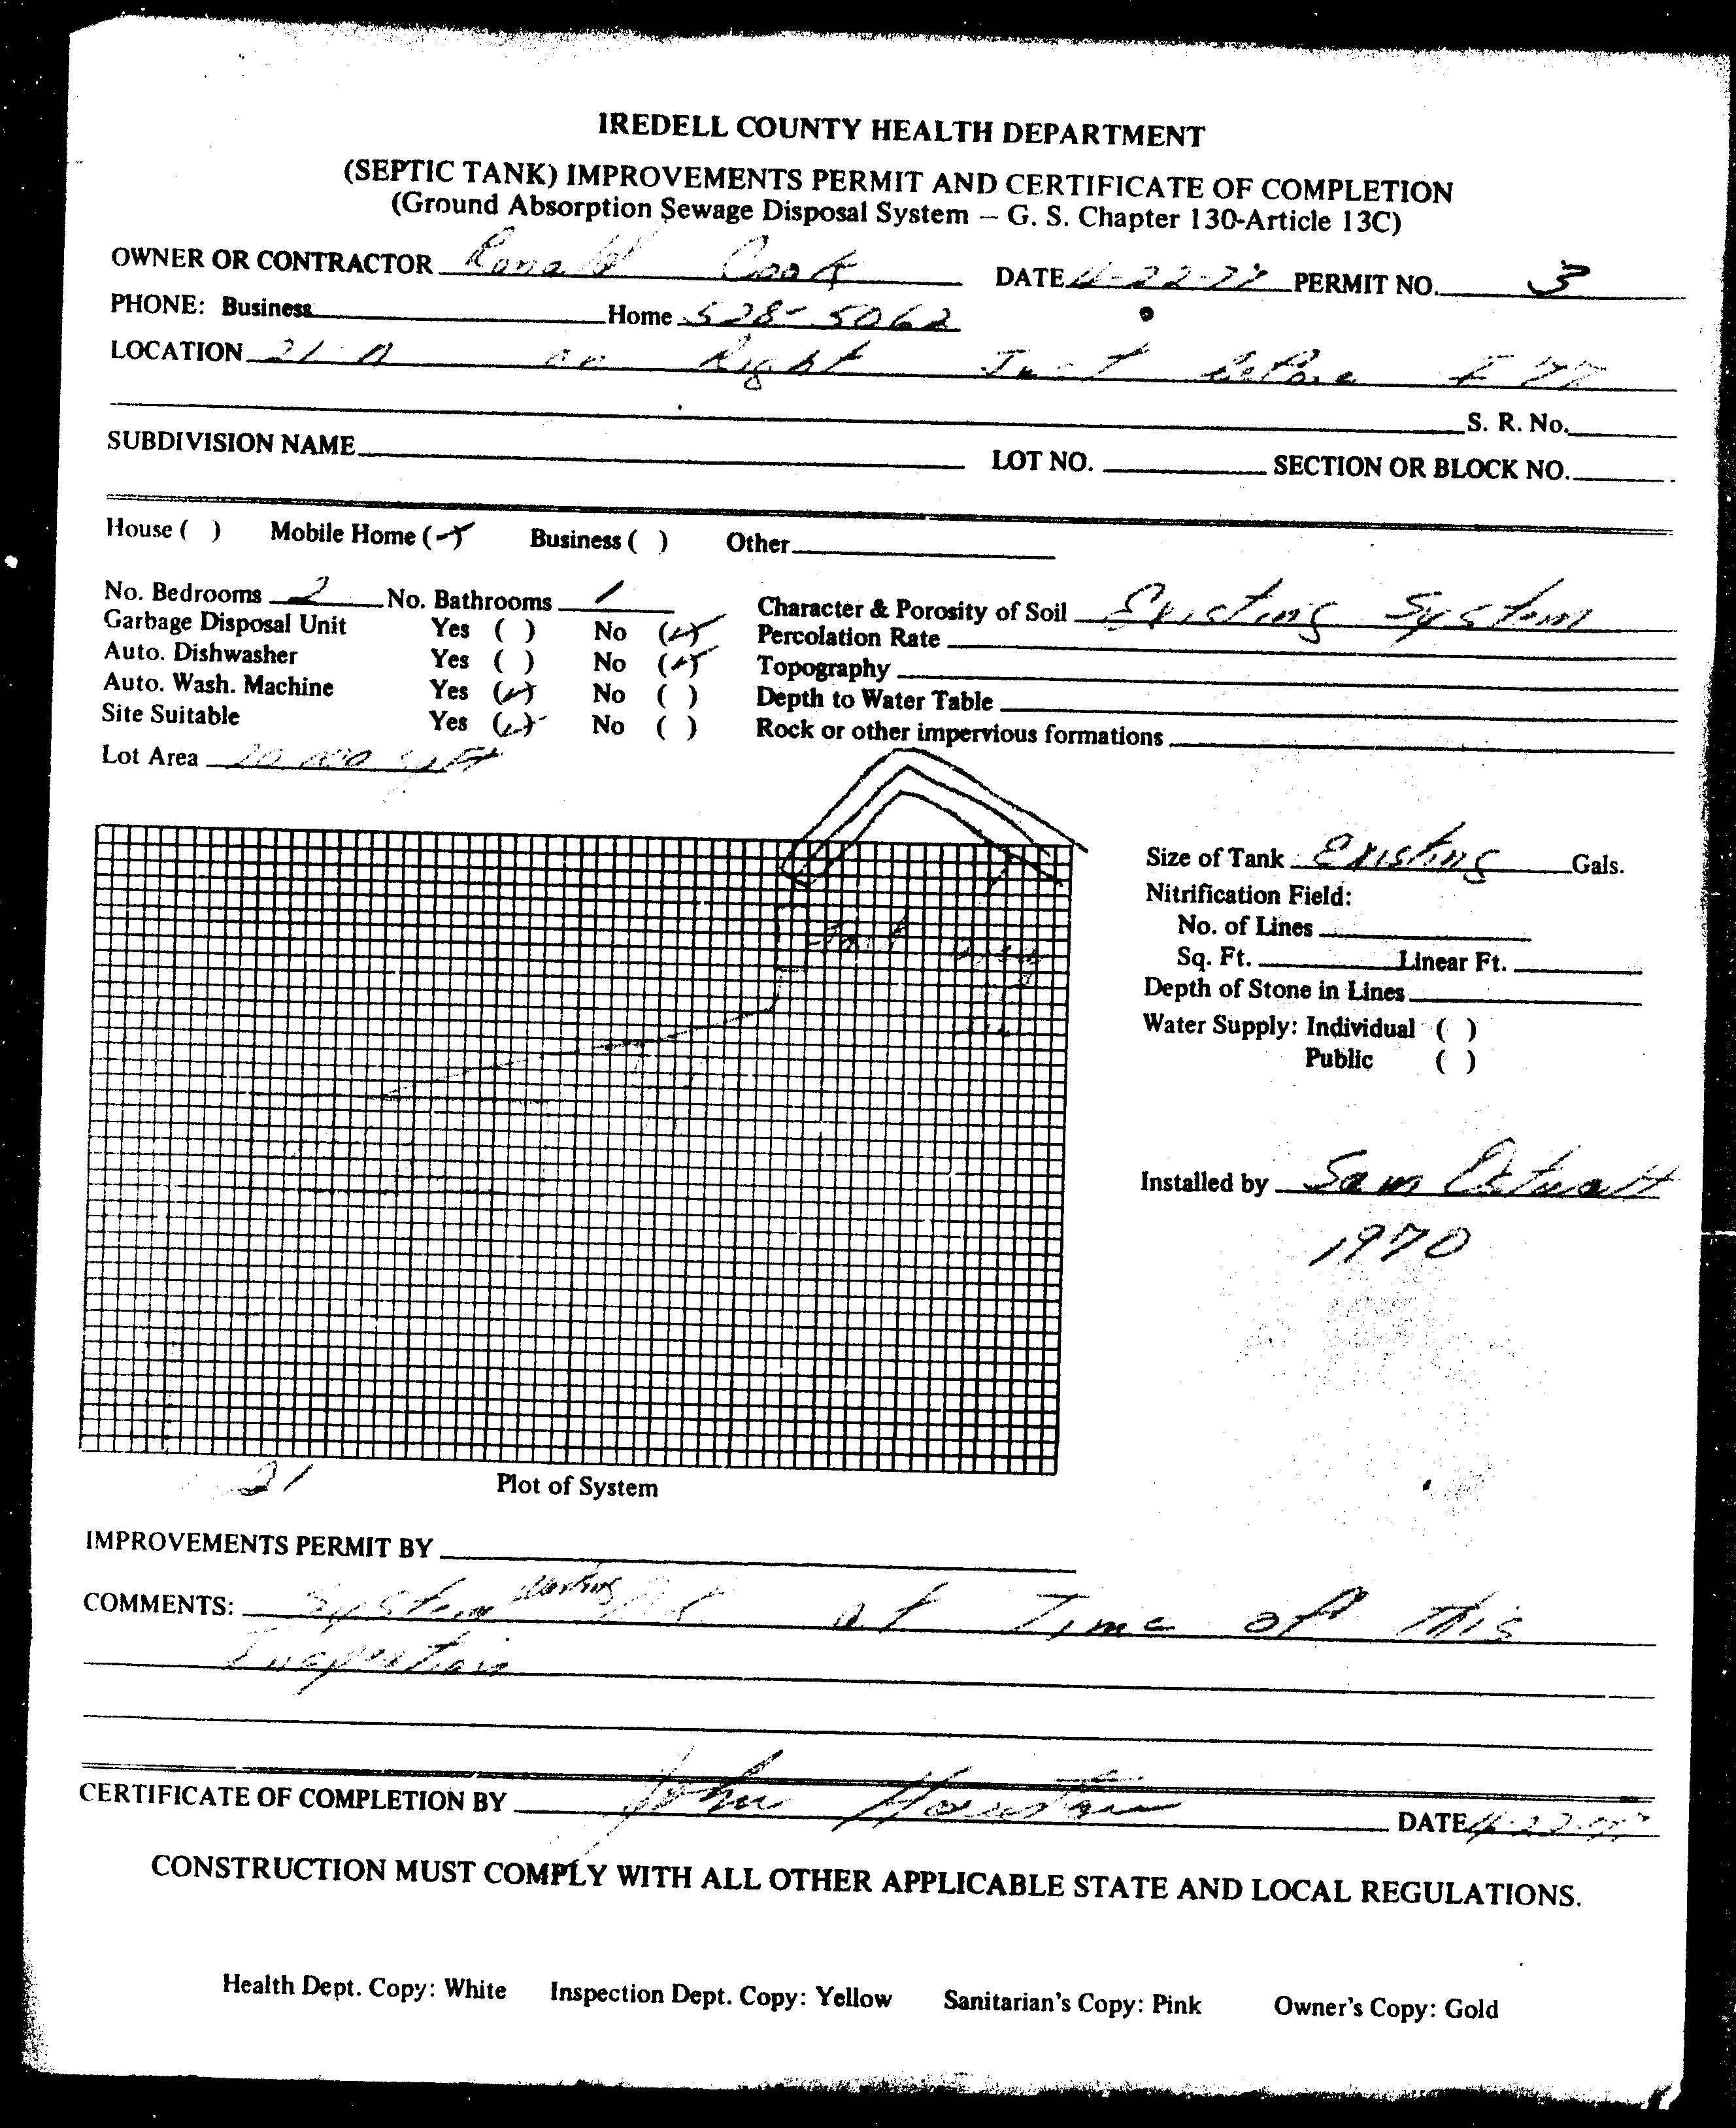 IREDELL COUNTY HEALTH DEPARTMENT
(SEPTIC TANK) IMPROVEMENTS PERMIT AND CERTIFICATE OF COMPLETION
(Ground Absorption Sewage Disposal System – G. S. Chapter 130-Article 13C)
OWNER OR CONTRACTOR Ronald Cook DATE 4-22-77 PERMIT NO. 3
PHONE: Business Home 528-5062
LOCATION 21 N on Right Just before I 77
S. R. No.
SUBDIVISION NAME LOT NO. SECTION OR BLOCK NO.
House ( ) Mobile Home (✓) Business ( ) Other
No. Bedrooms 2 No. Bathrooms 1 Character & Porosity of Soil Existing System
Garbage Disposal Unit Yes ( ) No (✓) Percolation Rate
Auto. Dishwasher Yes ( ) No (✓) Topography
Auto. Wash. Machine Yes (✓) No ( ) Depth to Water Table
Site Suitable Yes (✓) No ( ) Rock or other impervious formations
Lot Area 20,000 sq ft
Size of Tank Existing Gals.
Nitrification Field:
No. of Lines
Sq. Ft. Linear Ft.
Depth of Stone in Lines
Water Supply: Individual ( )
Public ( )
Installed by Sam
1970
21
Plot of System
IMPROVEMENTS PERMIT BY
COMMENTS: System Working OK at Time of This
Inspection
CERTIFICATE OF COMPLETION BY John DATE 4-22-77
CONSTRUCTION MUST COMPLY WITH ALL OTHER APPLICABLE STATE AND LOCAL REGULATIONS.
Health Dept. Copy: White Inspection Dept. Copy: Yellow Sanitarian's Copy: Pink Owner's Copy: Gold